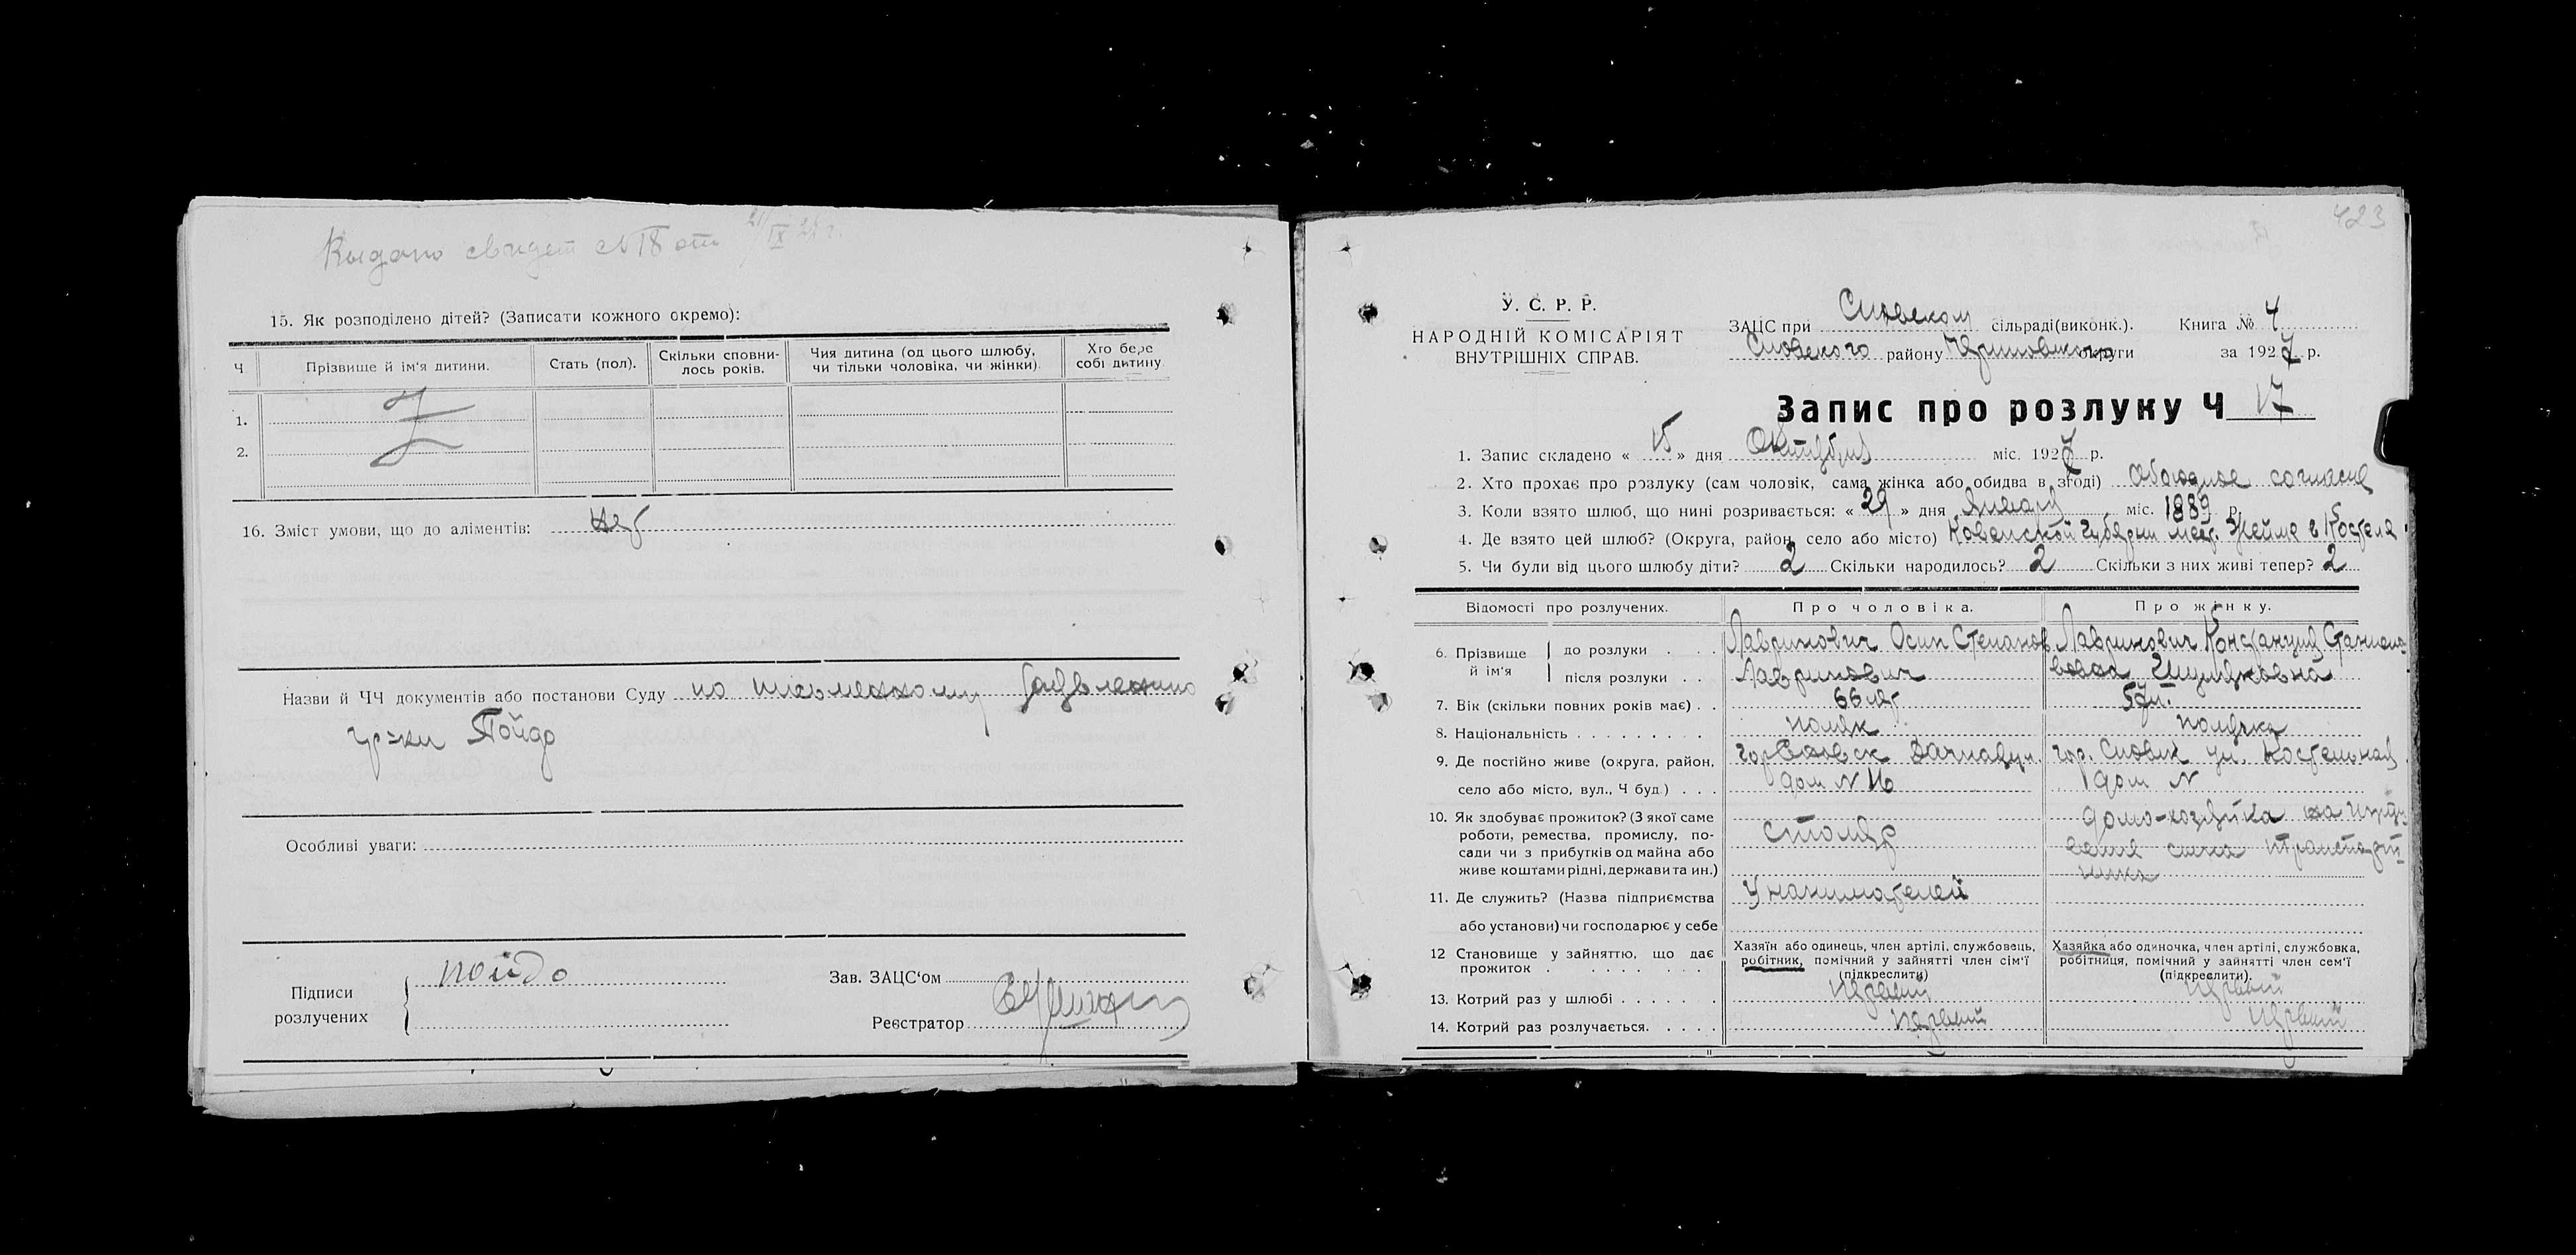 Выдано свидет № 18 от 21/IX 27 г.
15. Як розподілено дітей? (Записати кожного окремо):
Ч Прізвище й ім'я дитини. Стать (пол). Скільки сповни-лось років. Чия дитина (од цього шлюбу, чи тільки чоловіка, чи жінки) Хто бере собі дитину.
1.
2.
16. Зміст умови, що до аліментів: нет
Назви й ЧЧ документів або постанови Суду по письменному
гр-ки Пойдо
Особливі уваги:
Підписи розлучених
пойдо
Зав. ЗАЦС'ом
Реєстратор
423
У. С. Р. Р.
НАРОДНІЙ КОМІСАРІЯТ
ВНУТРІШНІХ СПРАВ.
ЗАЦС при Сновском сільраді(виконк.). Книга № 4
Сновского району округи за 1927 р.
Запис про розлуку Ч 17
1. Запис складено « 15 » дня Октября міс. 1927 р.
2. Хто прохає про розлуку (сам чоловік, сама жінка або обидва в згоді) Обоюдное согласие
3. Коли взято шлюб, що нині розривається: « 29 » дня Января міс. 1889 р.
4. Де взято цей шлюб? (Округа, район, село або місто) Ковенской Губернии мест. Жейме в Костеле
5. Чи були від цього шлюбу діти? 2 Скільки народилось? 2 Скільки з них живі тепер? 2
Відомості про розлучених. Про чоловіка. Про жінку.
6. Прізвище й ім'я до розлуки . . . Лавринович Осип Степанов Лавринович Констанция Станисла
після розлуки . . Лавринович вовна
7. Вік (скільки повних років має) . . 66 лет 57 л.
8. Національність . . . . . . . . . поляк полячка
9. Де постійно живе (округа, район, гор Сновск гор. Сновск ул. Костельная
село або місто, вул., Ч буд.) . . . дом N 16 дом N
10. Як здобуває прожиток? (З якої саме домо-хозяйка на
роботи, ремества, промислу, по- столяр
сади чи з прибутків од майна або сина
живе коштами рідні, держави та ин.)
11. Де служить? (Назва підприємства У нанимателей
або установи) чи господарює у себе
12 Становище у зайняттю, що дає Хазяїн або одинець, член артілі, службовець, Хазяйка або одиночка, член артілі, службовка,
прожиток . . . . . . . робітник, помічний у зайнятті член сім'ї робітниця, помічний у зайнятті член сем'ї
(підкреслити) (підкреслити).
13. Котрий раз у шлюбі . . . . . . первый первый
14. Котрий раз розлучається. . . . . первый первый